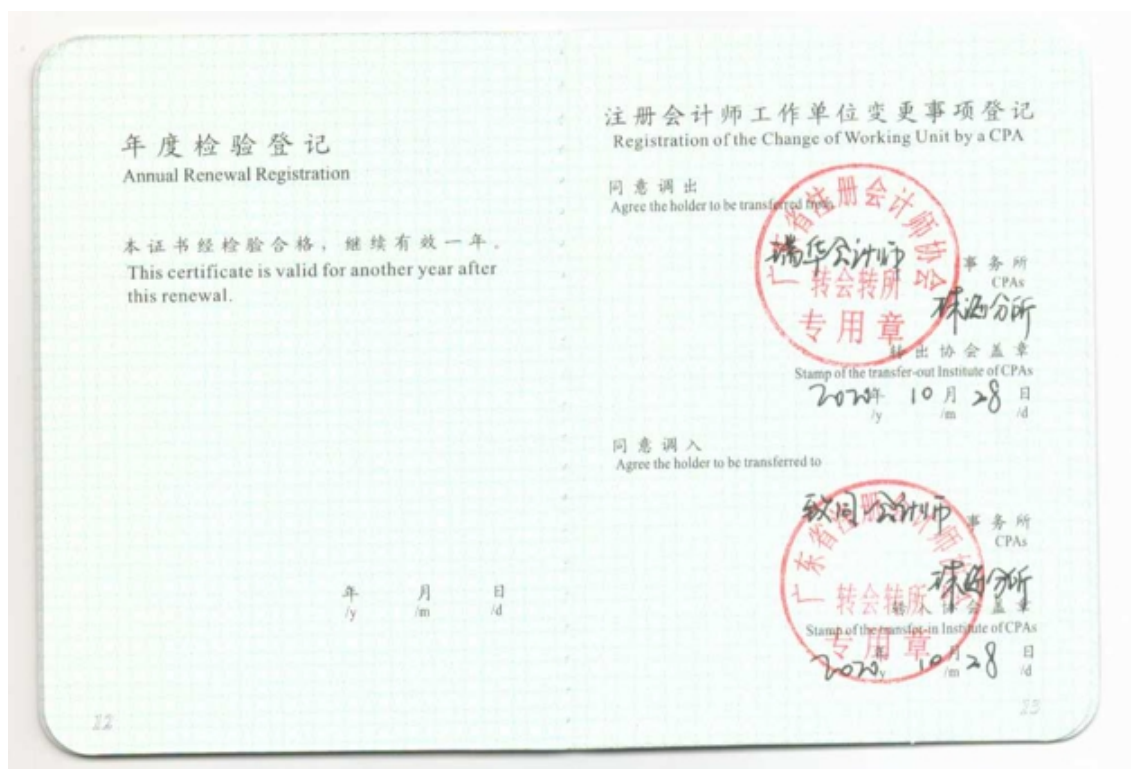 年度检验登记
Annual Renewal Registration
本证书经检验合格，继续有效一年。
This certificate is valid for another year after
this renewal.
年 月 日
/y /m /d
12
注册会计师工作单位变更事项登记
Registration of the Change of Working Unit by a CPA
同意调出
Agree the holder to be transferred from
瑞华会计师 事务所
CPAs
珠海分所
转出协会盖章
Stamp of the transfer-out Institute of CPAs
2020年 10月 28日
/y /m /d
广东省注册会计师协会
转会转所
专用章
同意调入
Agree the holder to be transferred to
致同会计师 事务所
CPAs
珠海分所
转入协会盖章
Stamp of the transfer-in Institute of CPAs
2020年 10月 28日
/y /m /d
广东省注册会计师协会
转会转所
专用章
13